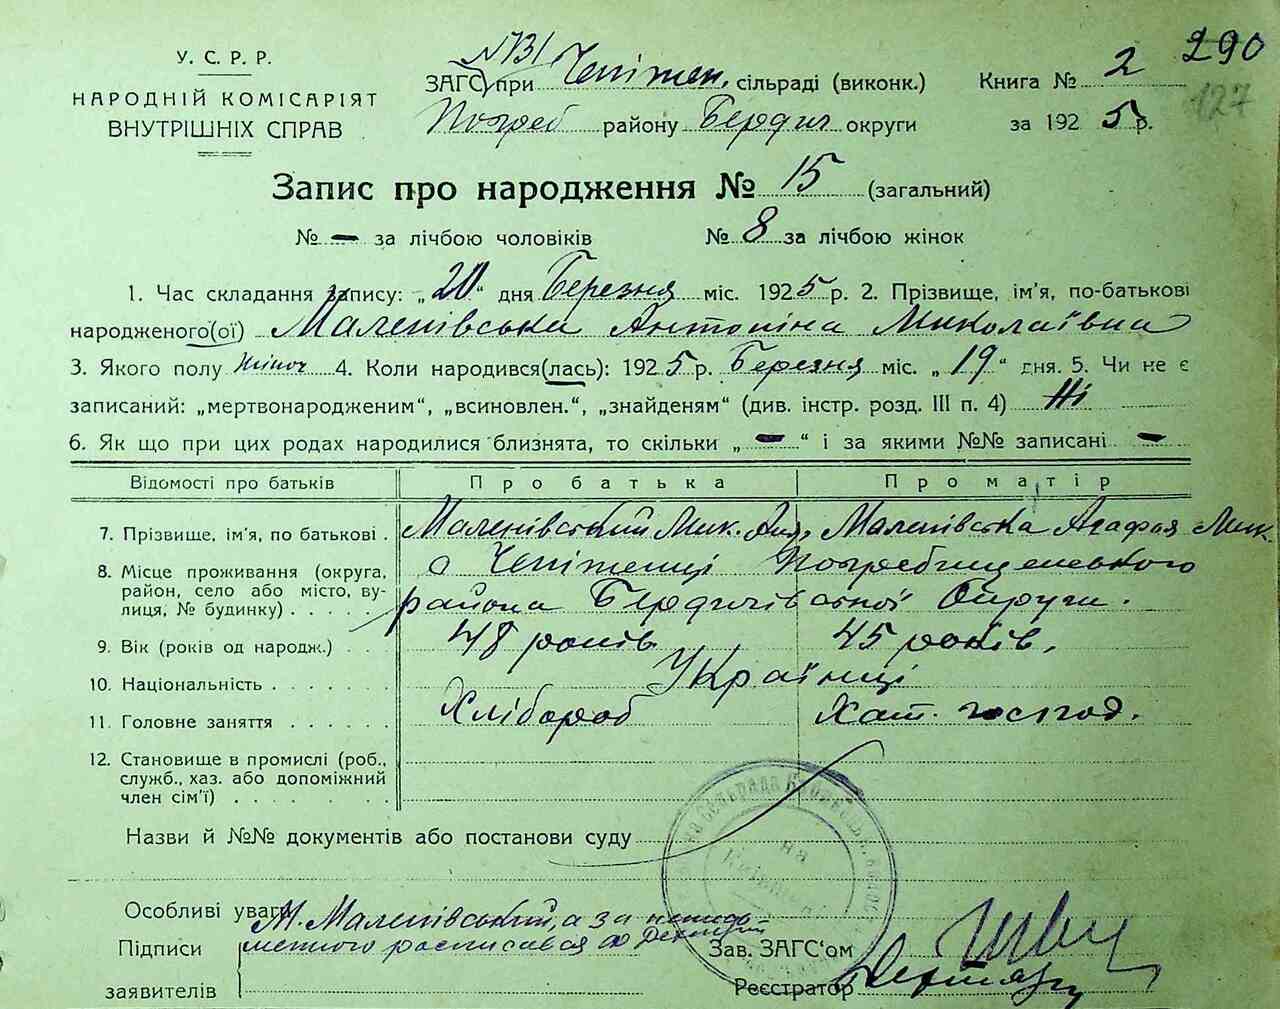 290
127
У. С. Р. Р.
НАРОДНІЙ КОМІСАРІЯТ
ВНУТРІШНІХ СПРАВ
ЗАГС при Чепіжен. сільраді (виконк.)
Погреб району Бердич округи
Книга № 2
за 1925 р.
Запис про народження № 15 (загальний)
№ – за лічбою чоловіків № 8 за лічбою жінок
1. Час складання запису: „20“ дня Березня міс. 1925 р. 2. Прізвище, ім'я, по-батькові
народженого(ої) Маленівська Антоніна Миколаївна
3. Якого полу жіноч 4. Коли народився(лась): 1925 р. Березня міс. „19“ дня. 5. Чи не є
записаний: „мертвонародженим“, „всиновлен.“, „знайденям“ (див. інстр. розд. III п. 4) Ні
6. Як що при цих родах народилися близнята, то скільки „–“ і за якими №№ записані –
Відомості про батьків Про батька Про матір
7. Прізвище, ім'я, по батькові . Маленівський Мик. Маленівська Агафія Мик.
8. Місце проживання (округа, район, село або місто, вулиця, № будинку) . . . . . с Чепіженці Погребищенського
района Бердичівської Округи.
9. Вік (років од народж.) . . . 48 років 45 років.
10. Національність . . . . . . . Українці
11. Головне заняття . . . . . . Хлібороб Хат. господ.
12. Становище в промислі (роб.,
служб., хаз. або допоміжний
член сім'ї) . . . . . . . . . .
Назви й №№ документів або постанови суду
Особливі уваги М. Маленівський, а за непись-
Підписи менного росписався
заявителів
Зав. ЗАГС'ом
Реєстратор